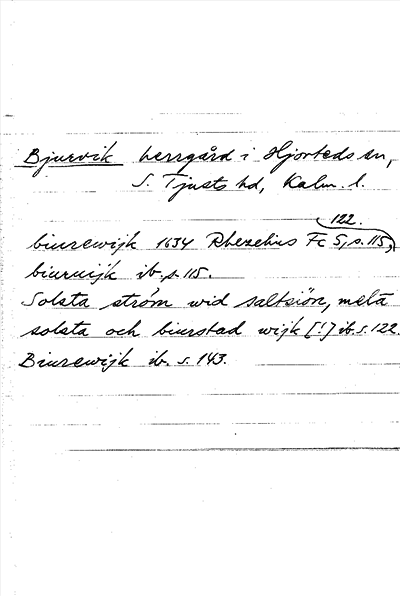 Bjurvik herrgård i Hjorteds sn,
S. Tjusts hd, Kalm. l.
122.
biurewijk 1634 Rhezelius Fc 5, s. 115,
biuruijk ib., s. 115.
Solsta ström wid saltsiön, melä
solsta och biurstad wijk [!] ib. s. 122.
Biurewijk ib. s. 143.